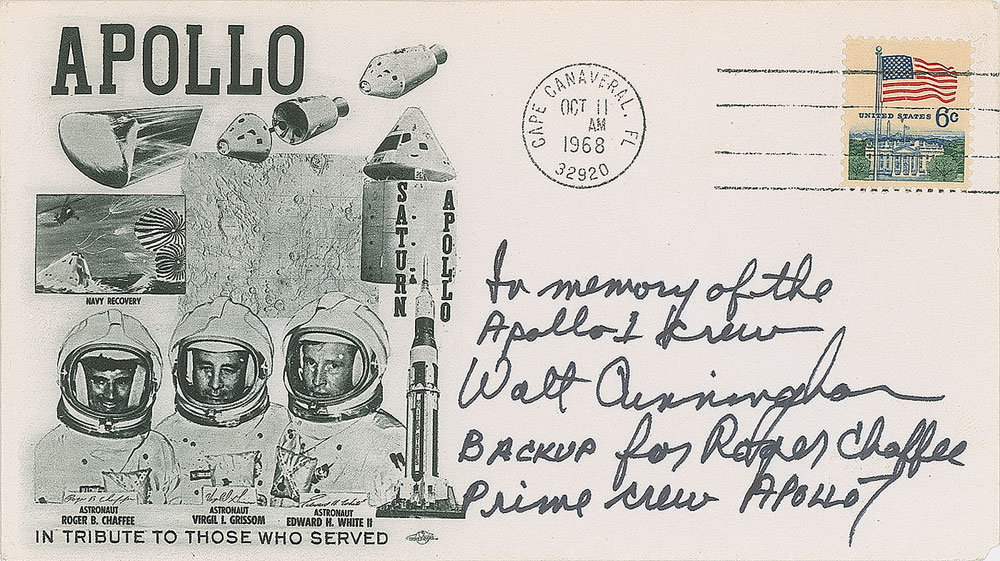 APOLLO
SATURN
APOLLO
NAVY RECOVERY
ASTRONAUT
ROGER B. CHAFFEE
ASTRONAUT
VIRGIL I. GRISSOM
ASTRONAUT
EDWARD H. WHITE II
IN TRIBUTE TO THOSE WHO SERVED
CAPE CANAVERAL, FL
OCT 11
AM
1968
32920
UNITED STATES 6c
In memory of the
Apollo 1 crew
Walt Cunningham
BACKUP for Roger Chaffee
Prime crew APOLLO 7